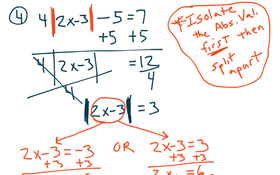 ④ 4|2x-3| -5 = 7
+5 +5
4|2x-3| = 12
4 4
|2x-3| = 3
2x-3 = -3 OR 2x-3 = 3
+3 +3 +3 +3
2x = 6
*Isolate
the Abs. Val.
first then
split
apart